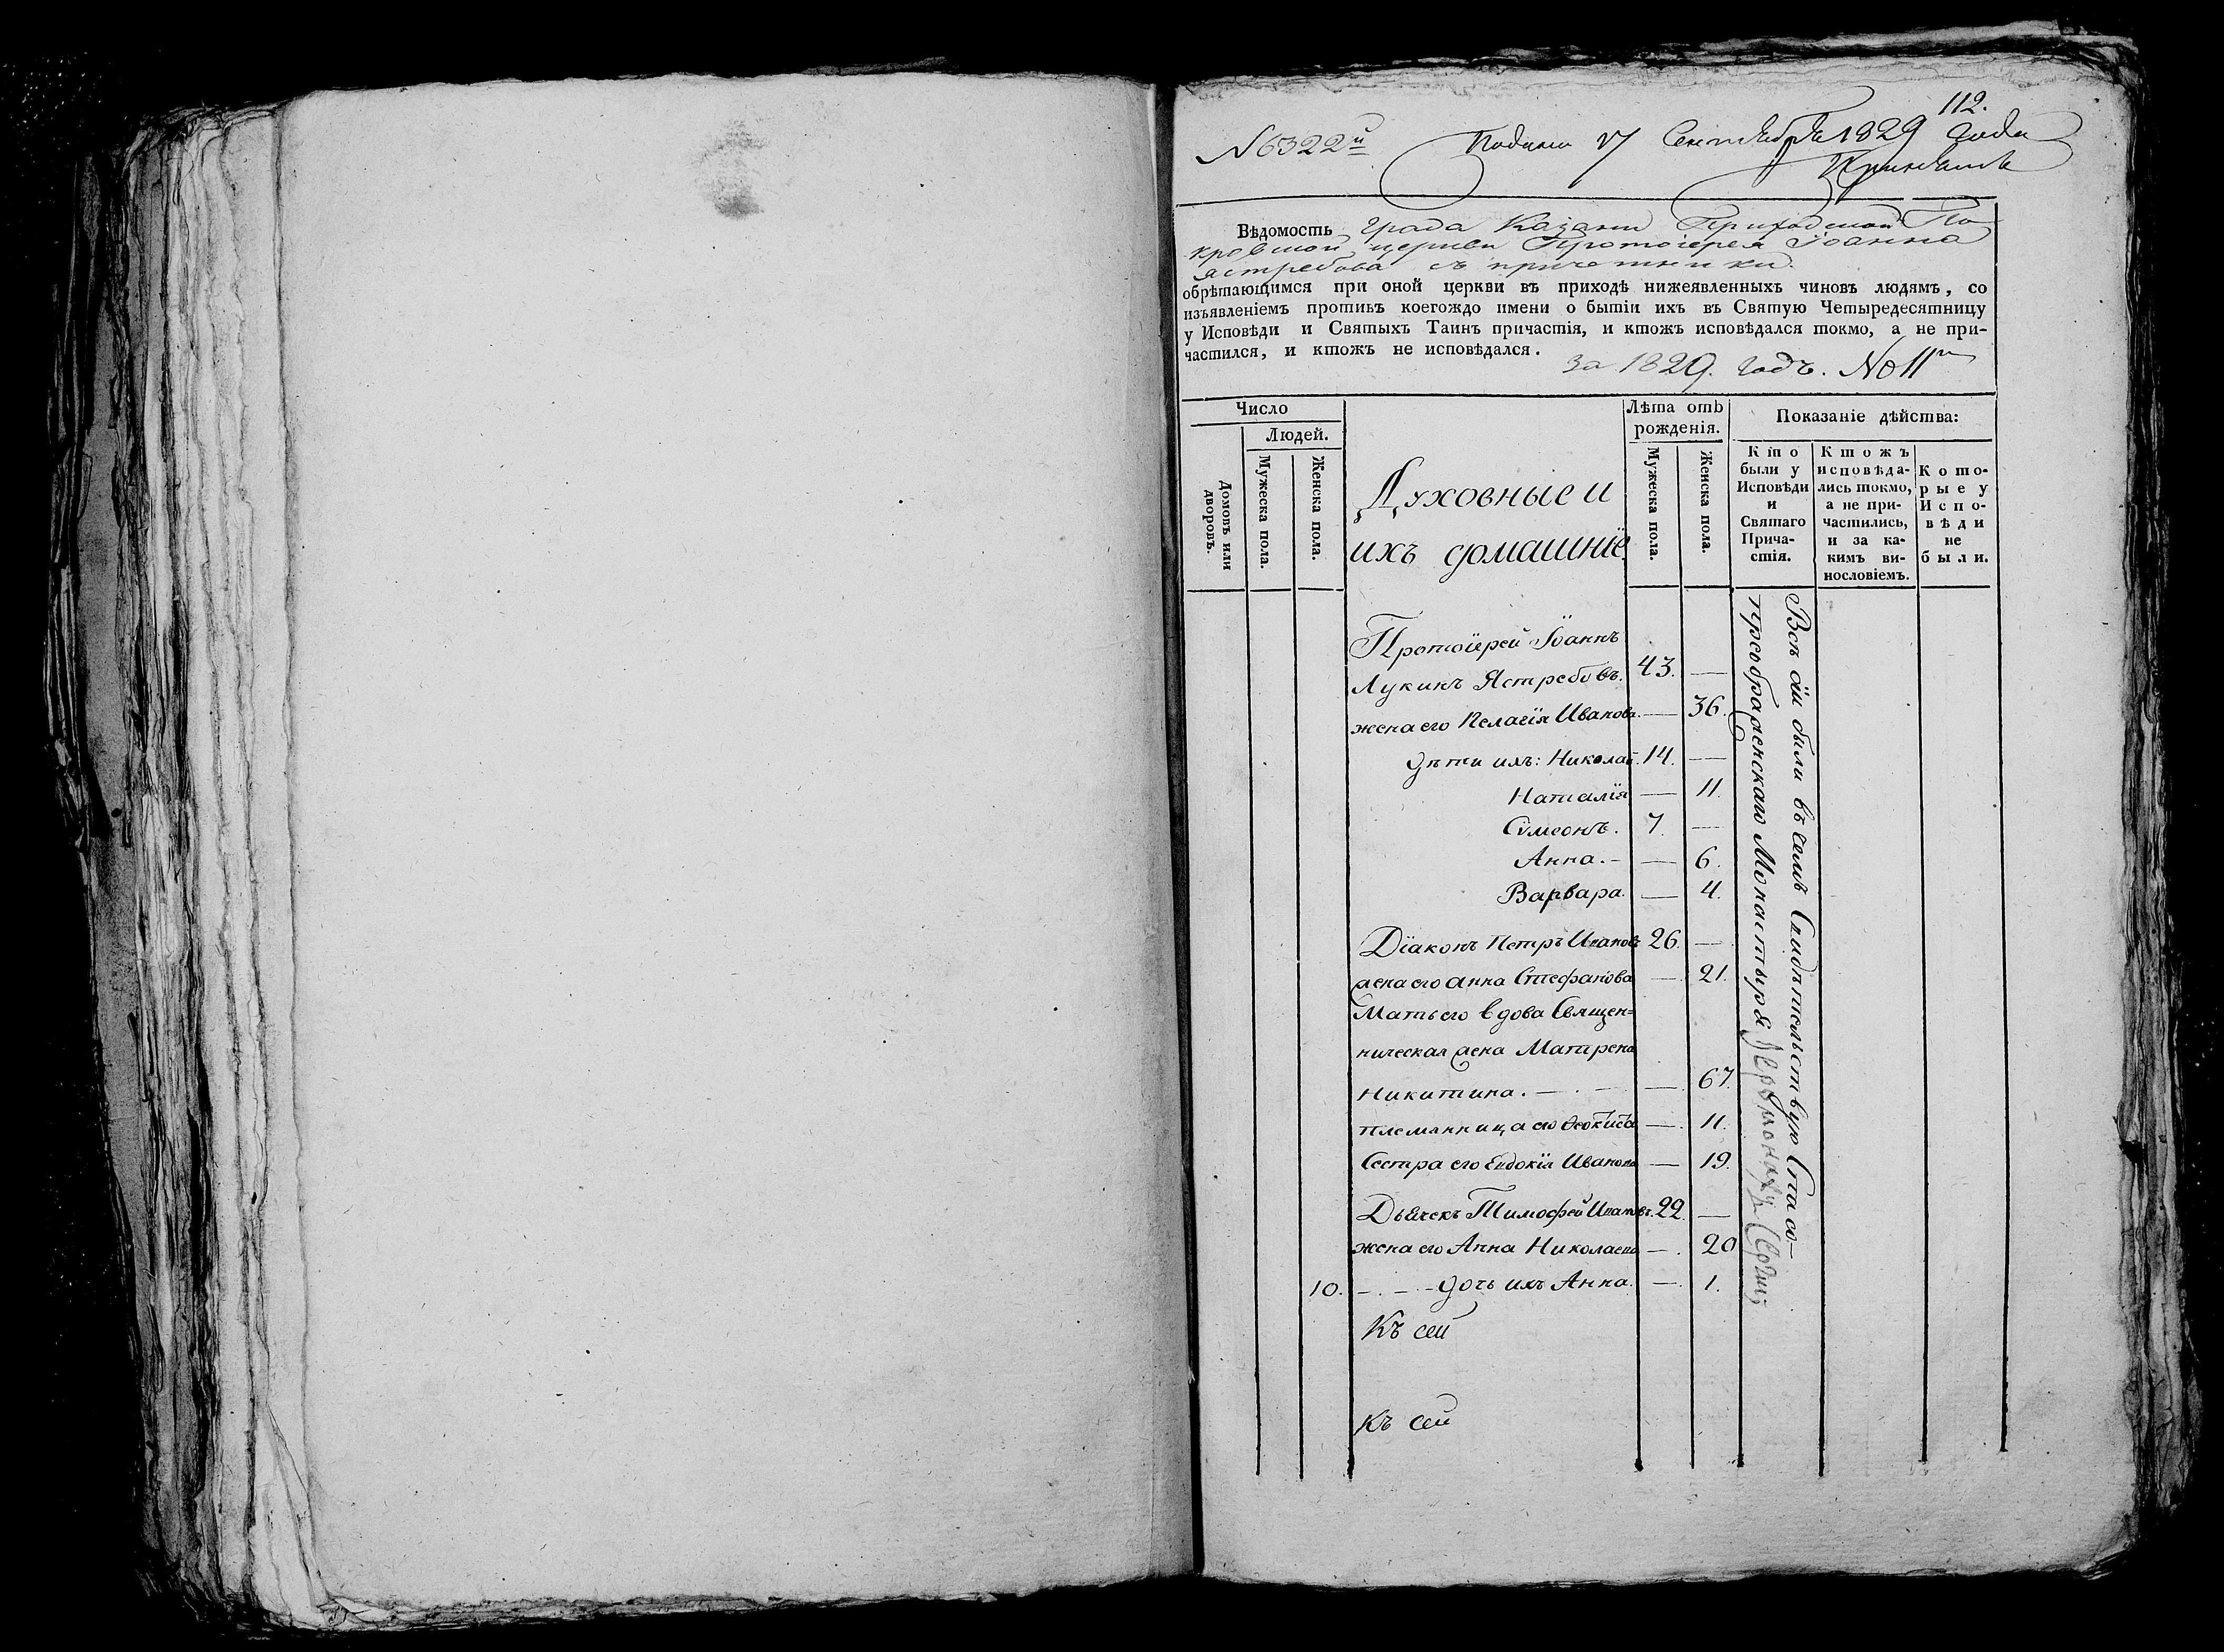 112.
№ 6322й Подана 17 Сентября 1829 года
Вѣдомость града Казани Приходской По-
кровской церкви Протоіерея Іоанна
Ястребова съ причетники.
обрѣтающимся при оной церкви въ приходѣ нижеявленныхъ чиновъ людямъ, со
изъявленіемъ противъ коегождо имени о бытіи ихъ въ Святую Четыредесятницу
у Исповѣди и Святыхъ Таинъ причастія, и ктожъ исповѣдался токмо, а не при-
частился, и ктожъ не исповѣдался.
за 1829. годъ. №11
Число
Людей.
Домовъ или дворовъ.
Мужеска пола.
Женска пола.
Духовные и
ихъ домашніе
Лѣта отъ
рожденія.
Мужеска пола.
Женска пола.
Показаніе дѣйства:
Кто
были у
Исповѣди
и
Святаго
Прича-
стія.
Ктожъ
исповѣда-
лись токмо,
а не при-
частились,
и за ка-
кимъ ви-
нословіемъ.
Кото-
рые у
Испо-
вѣди
не
были.
Протоіерей Іоаннъ
Лукинъ Ястребовъ. 43. —
жена его Пелагія Иванова. — 36.
дѣти ихъ: Николай. 14. —
Наталія — 11.
Сѵмеонъ. 7. —
Анна. — — 6.
Варвара. — 4.
Діаконъ Петръ Ивановъ 26. —
жена его Анна Стефанова — 21.
Мать его вдова Священ=
ническая жена Матрена
Никитина. — — — 67.
племянница его Ѳеоктиста — 11.
Сестра его Евдокія Иванова — 19.
Дьячекъ Тимофей Ивановъ. 22. —
жена его Анна Николаева — 20
10. — . — . — дочь ихъ Анна. — 1.
Къ сей
Къ сей
Всѣ сіи были въ семъ Свидѣтельствую Спасо-
преображенскаго Монастыря Іеромонахъ Сергій